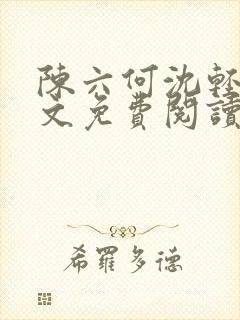 陳六何沈輕
文免費閱讀
希羅多德